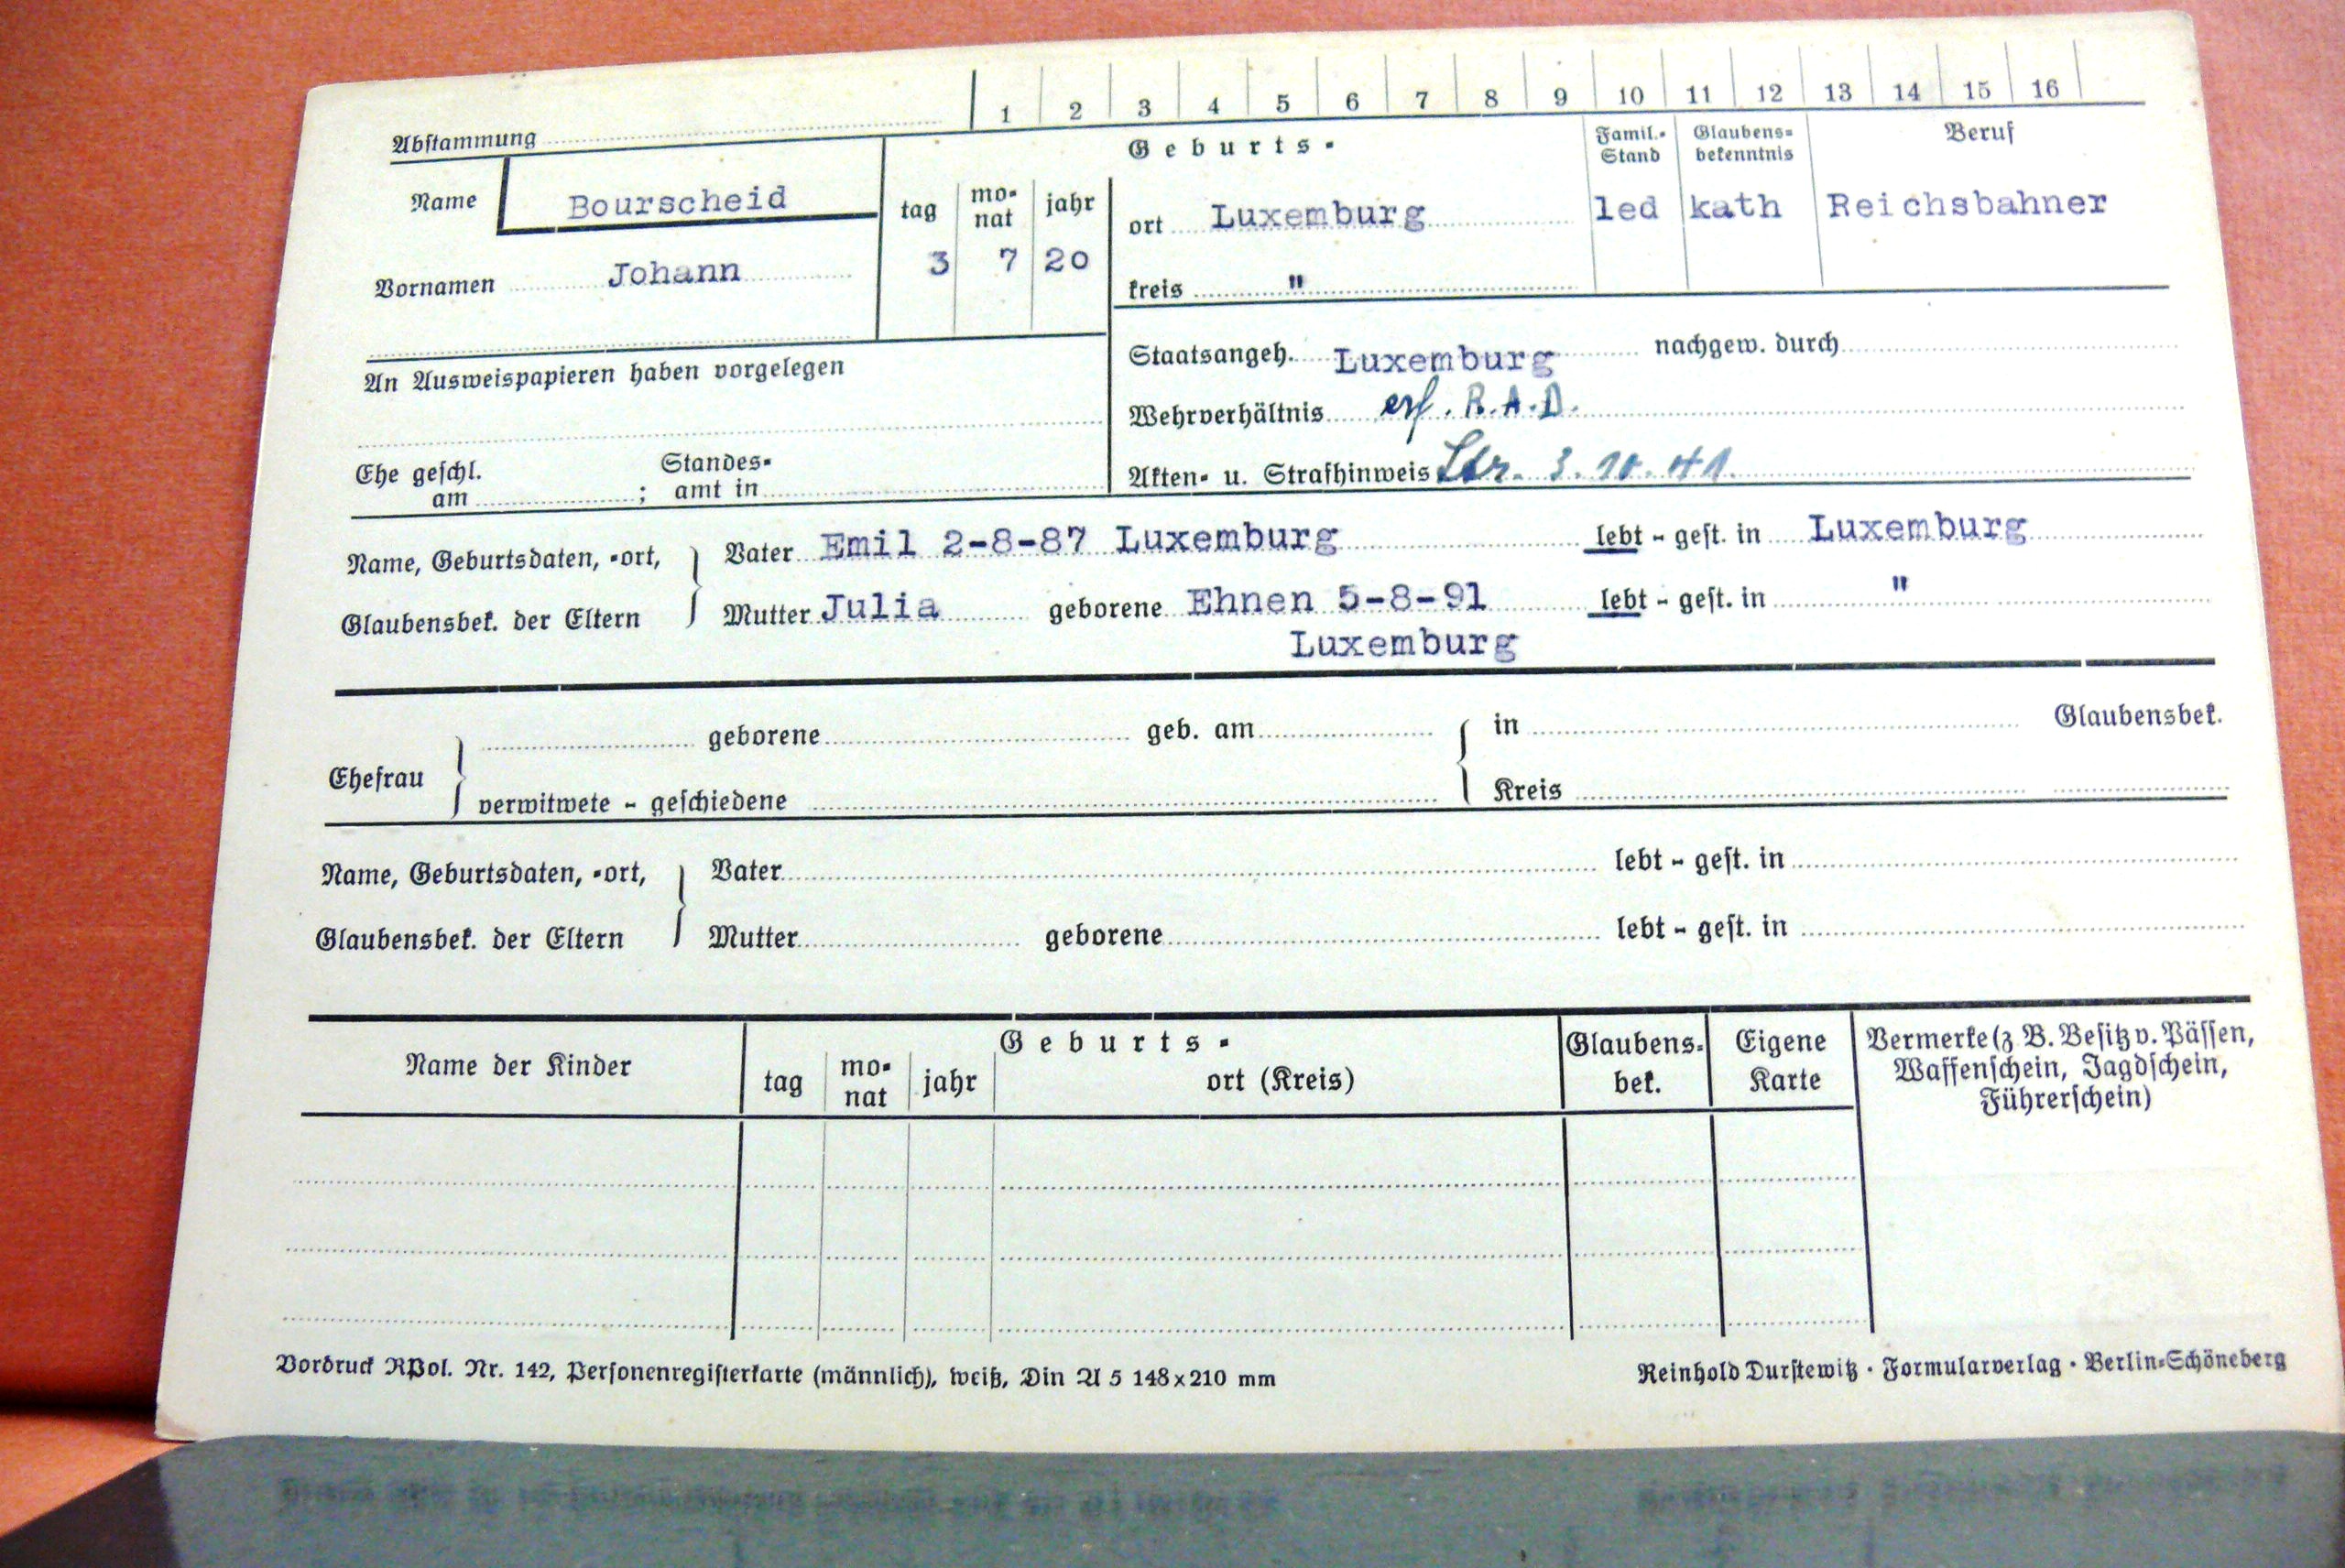 1 2 3 4 5 6 7 8 9 10 11 12 13 14 15 16
Abstammung
Name Bourscheid
Vornamen Johann
Geburts-
tag monat jahr
3 7 20
ort Luxemburg
kreis "
Famil.-Stand
led
Glaubens-bekenntnis
kath
Beruf
Reichsbahner
An Ausweispapieren haben vorgelegen
Staatsangeh. Luxemburg nachgew. durch
Wehrverhältnis erf. R.A.D.
Akten- u. Strafhinweis 3.10.41.
Ehe geschl. am ; Standes-amt in
Name, Geburtsdaten, -ort,
Glaubensbek. der Eltern
Vater Emil 2-8-87 Luxemburg lebt - gest. in Luxemburg
Mutter Julia geborene Ehnen 5-8-91 lebt - gest. in "
Luxemburg
Ehefrau
geborene geb. am in Glaubensbek.
verwitwete - geschiedene Kreis
Name, Geburtsdaten, -ort,
Glaubensbek. der Eltern
Vater lebt - gest. in
Mutter geborene lebt - gest. in
Name der Kinder
Geburts-
tag monat jahr ort (Kreis)
Glaubens-bek.
Eigene Karte
Vermerke (z. B. Besitz v. Pässen,
Waffenschein, Jagdschein,
Führerschein)
Vordruck RPol. Nr. 142, Personenregisterkarte (männlich), weiß, Din A 5 148x210 mm
Reinhold Durstewitz · Formularverlag · Berlin-Schöneberg